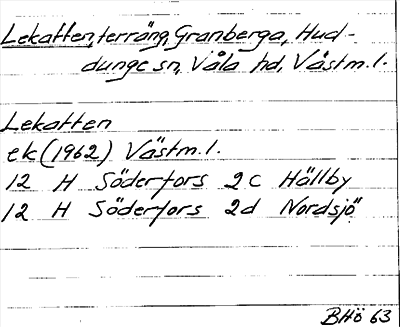 Lekatten, terräng, Granberga, Hud-
dunge sn, Våla hd, Västm.l.
Lekatten
ek (1962) Västm.l.
12 H Söderfors 2c Hällby
12 H Söderfors 2d Nordsjö
BHö 63